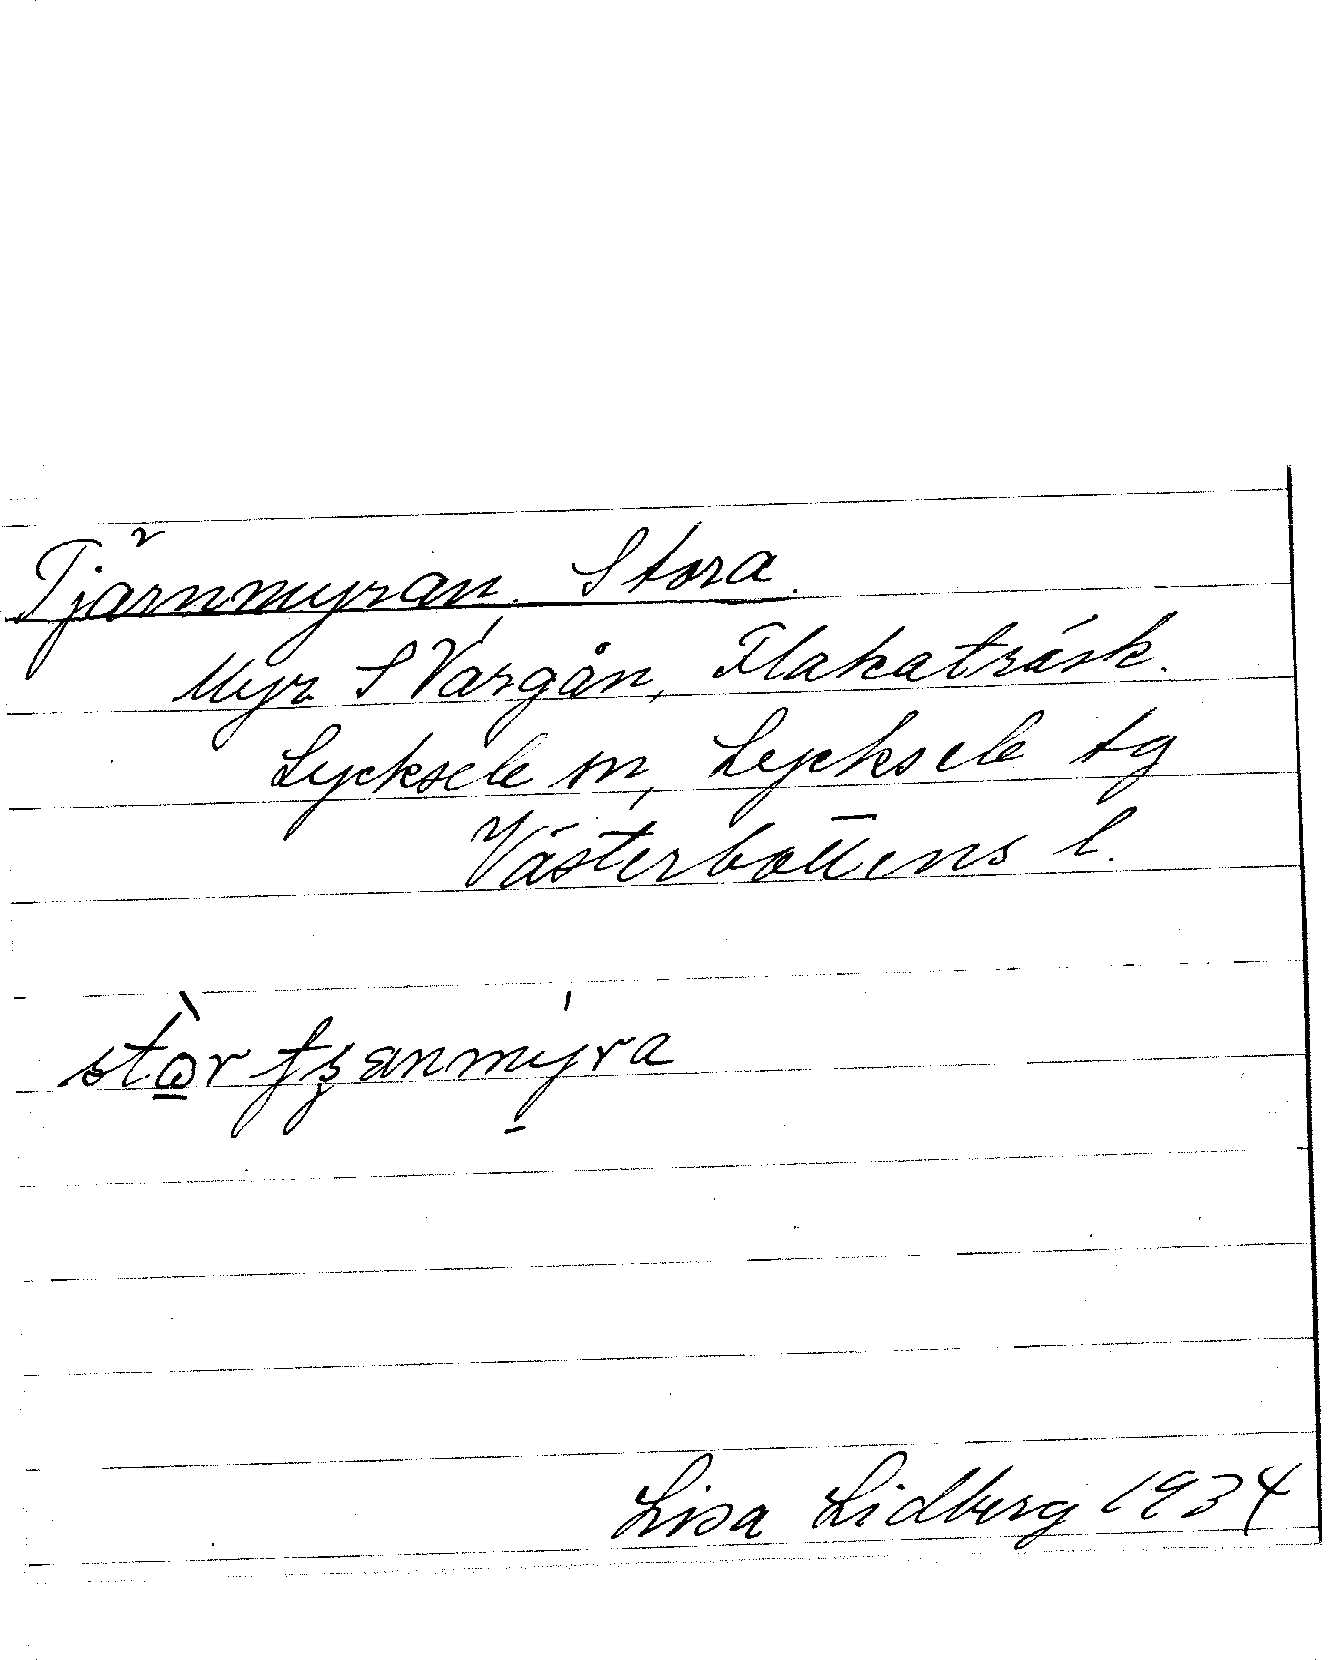 Tjärnmyran, Stora.
Myr S Vargån, Flakaträsk.
Lycksele sn, Lycksele tg
Västerbottens l.
Lisa Lidberg 1934